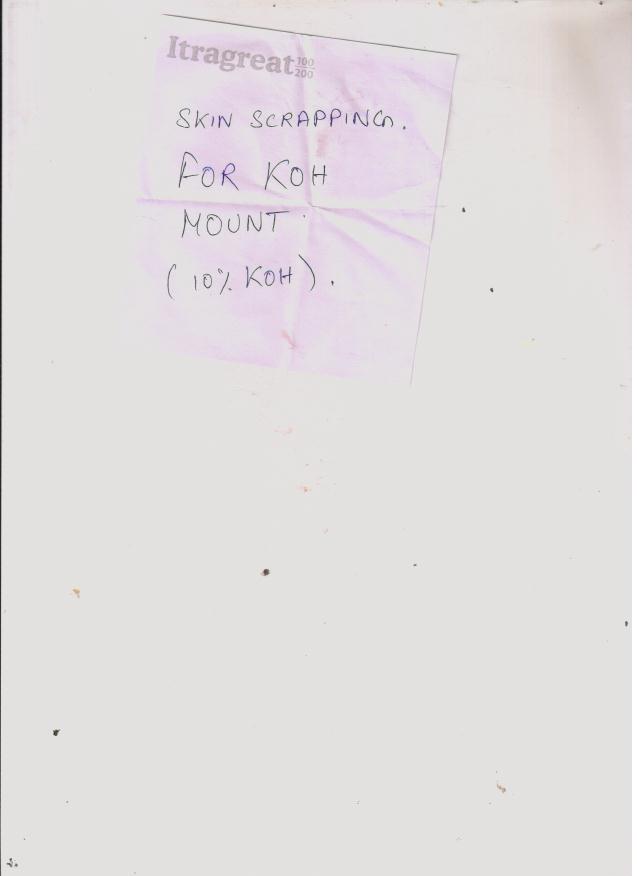 Itragreat 100/200
SKIN SCRAPPING.
FOR KOH
MOUNT.
(10% KOH).